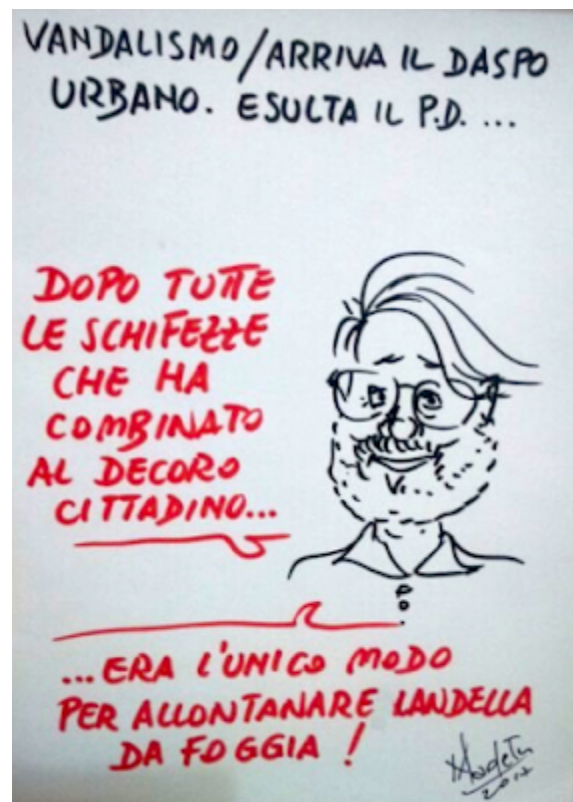 VANDALISMO/ARRIVA IL DASPO
URBANO. ESULTA IL P.D. ...
DOPO TUTTE
LE SCHIFEZZE
CHE HA
COMBINATO
AL DECORO
CITTADINO...
...ERA L'UNICO MODO
PER ALLONTANARE LANDELLA
DA FOGGIA!
2017